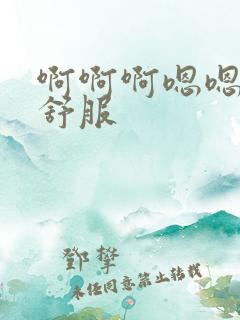 啊啊啊嗯嗯
舒服
鄧攀
未经同意禁止转载